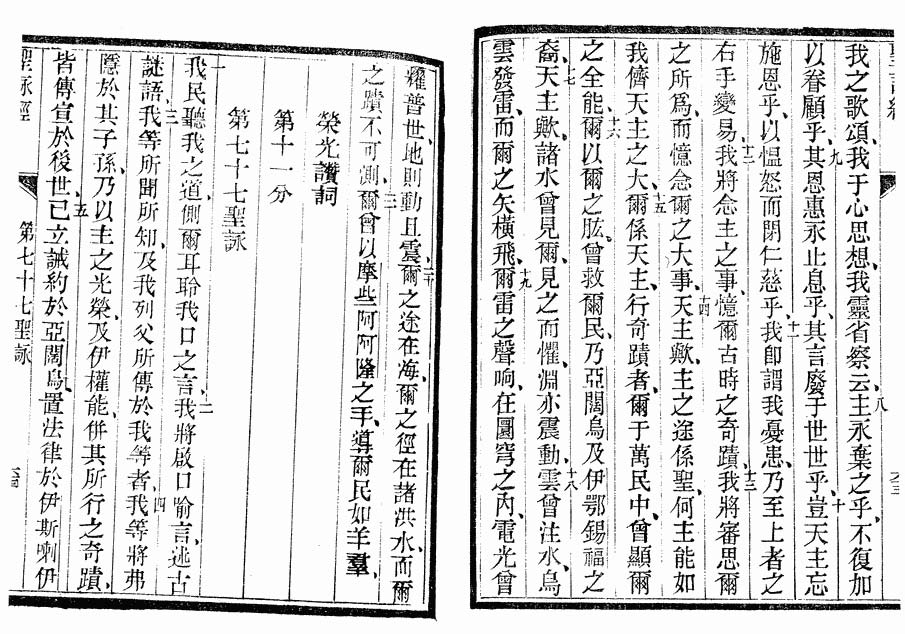 我之歌頌、我于心思想、我靈省察云、八主永棄之乎、不復加
以眷顧乎、九其恩惠永止息乎、其言廢于世世乎、十豈天主忘
施恩乎、以慍怒而閉仁慈乎、十一我卽謂我憂患、乃至上者之
右手變易、十二我將念主之事、憶爾古時之奇蹟、十三我將審思爾
之所爲、而憶念爾之大事、十四天主歟、主之途係聖、何主能如
我儕天主之大、十五爾係天主、行奇蹟者、爾于萬民中、曾顯爾
之全能、十六爾以爾之肱、曾救爾民、乃亞闊烏及伊鄂錫福之
裔、十七天主歟、諸水曾見爾、見之而懼、淵亦震動、十八雲曾注水、烏
雲發雷、而爾之矢橫飛、十九爾雷之聲、响在圜穹之內、電光曾
耀普世、地則動且震、二十爾之途在海、爾之徑在諸洪水、而爾
之蹟不可測、二一爾曾以摩些阿阿隆之手、導爾民如羊羣、
榮光讚詞
第十一分
第七十七聖詠
一我民聽我之道、側爾耳聆我口之言、二我將啟口喻言、述古
謎語、三我等所聞所知、及我列父所傳於我等者、四我等將弗
隱於其子孫、乃以主之光榮、及伊權能、併其所行之奇蹟、
皆傳宣於後世、五已立誡約於亞闊烏、置法律於伊斯喇伊
聖詠經
第七十七聖詠